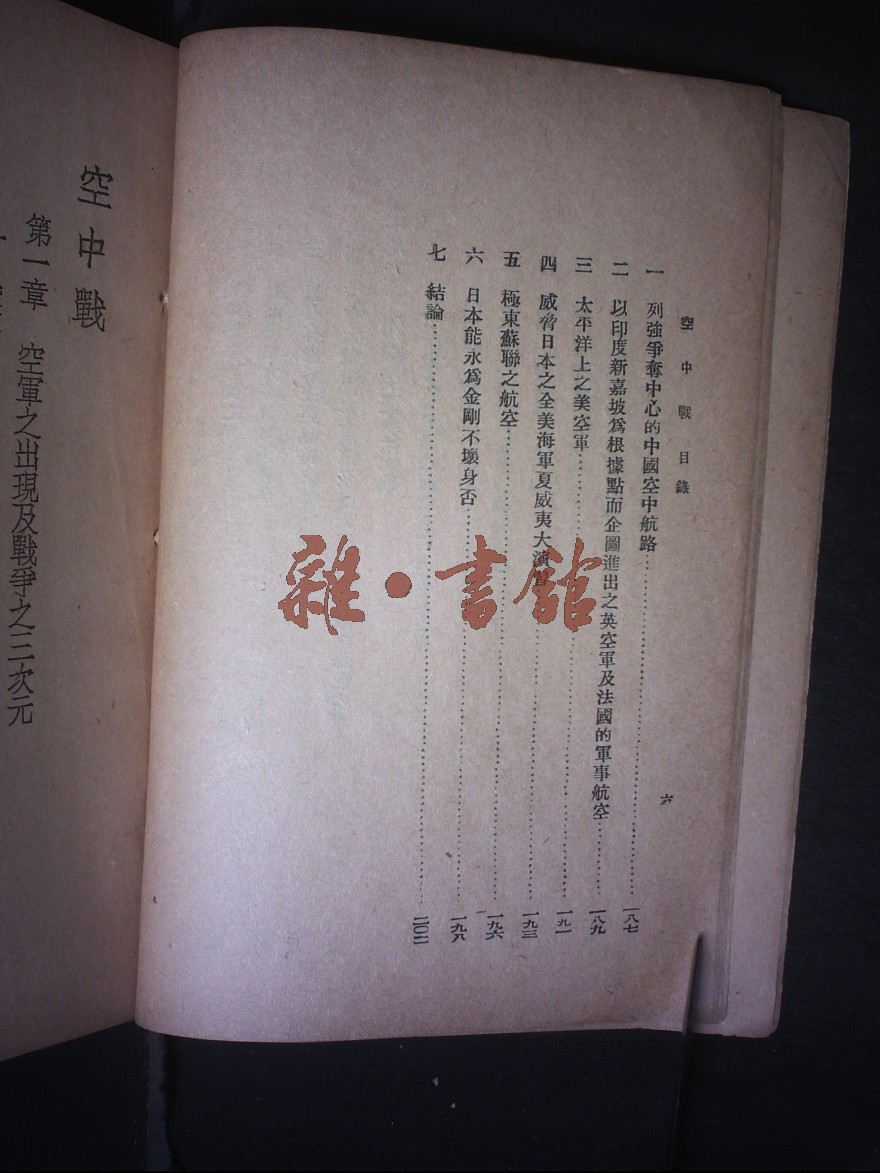 空中戰目錄
六
一　列強爭奪中心的中國空中航路……一八七
二　以印度新嘉坡爲根據點而企圖進出之英空軍及法國的軍事航空……一八九
三　太平洋上之美空軍……一九一
四　威脅日本之全美海軍夏威夷大演習……一九三
五　極東蘇聯之航空……一九六
六　日本能永爲金剛不壞身否……一九八
七　結論……二〇二
空中戰
第一章　空軍之出現及戰爭之三次元
雜·書館